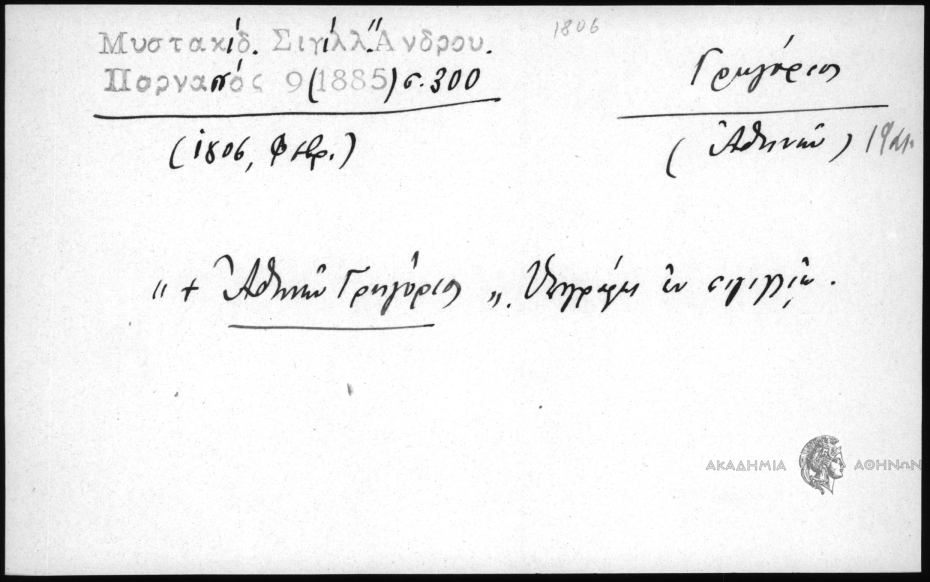 1806
Μυστακίδ. Σιγίλλ. Ἄνδρου.
Παρνασσός 9 (1885) σ. 300
Γρηγόριος
(1806, Φεβρ.)
(Ἀθηνῶν)
"+ Ἀθηνῶν Γρηγόριος". Ὑπογράφει ἐν σιγιλλίῳ.
ΑΚΑΔΗΜΙΑ ΑΘΗΝΩΝ